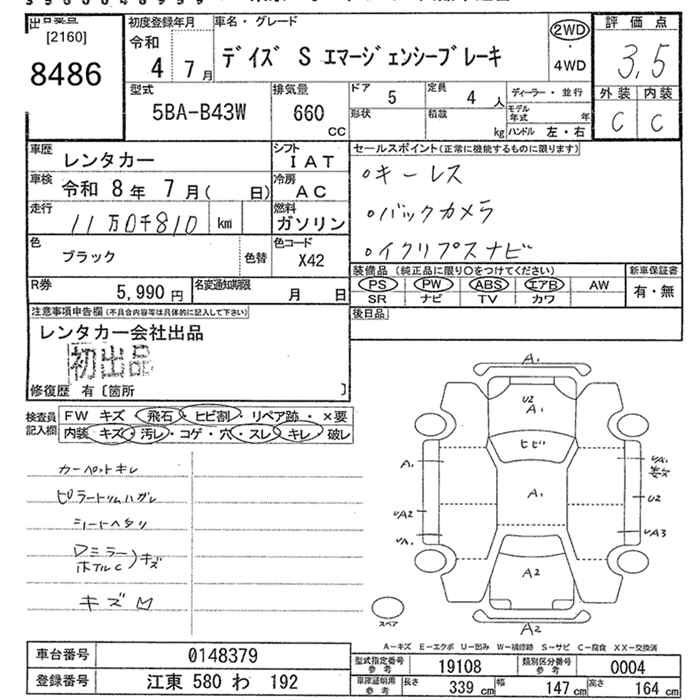 出品票
[2160]
8486
初度登録年月
令和
4 7月
車名・グレード
デイズ S エマージェンシーブレーキ
2WD
4WD
評価点
3,5
外装 内装
C C
型式
5BA-B43W
排気量
660
CC
ドア 5
定員 4 人
形状
積載 kg
ディーラー・並行
モデル年式 年
ハンドル 左・右
車歴
レンタカー
シフト
IAT
車検 令和 8年 7月( 日)
冷房
AC
走行 11万0千810 km
燃料
ガソリン
色
ブラック
色替
色コード
X42
R券 5,990円
名変通知期限 月 日
セールスポイント(正常に機能するものに限ります)
○キーレス
○バックカメラ
○イクリプスナビ
装備品(純正品に限り○をつけてください)
PS PW ABS エアB AW
SR ナビ TV カワ
新車保証書
有・無
後日品
注意事項申告欄(不具合内容等は具体的に記入して下さい)
レンタカー会社出品
初出品
修復歴 有〔箇所 〕
検査員記入欄
FW キズ 飛石・ヒビ割・リペア跡・×要
内装 キズ・汚レ・コゲ・穴・スレ・キレ・破レ
カーペットキレ
ピラートリムハガレ
シートヘタリ
Dミラー
ホイルC)キズ
キズ
A1
U2
A1
ヒビ
A1
A1
UA1
U2
UA2
UA1
UA3
A2
A2
スペア
A-キズ E-エクボ U-凹み W-補修跡 S-サビ C-腐食 XX-交換済
車台番号 0148379
登録番号 江東 580 わ 192
型式指定番号 参考 19108
類別区分番号 参考 0004
車庫証明用 参考
長さ 339 cm 幅 147 cm 高さ 164 cm